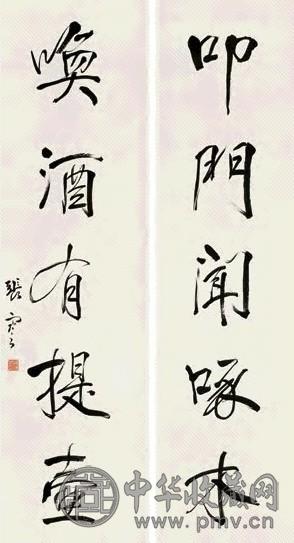 叩門聞啄木
喚酒有提壺
張
中华收藏网
www.pmv.cn